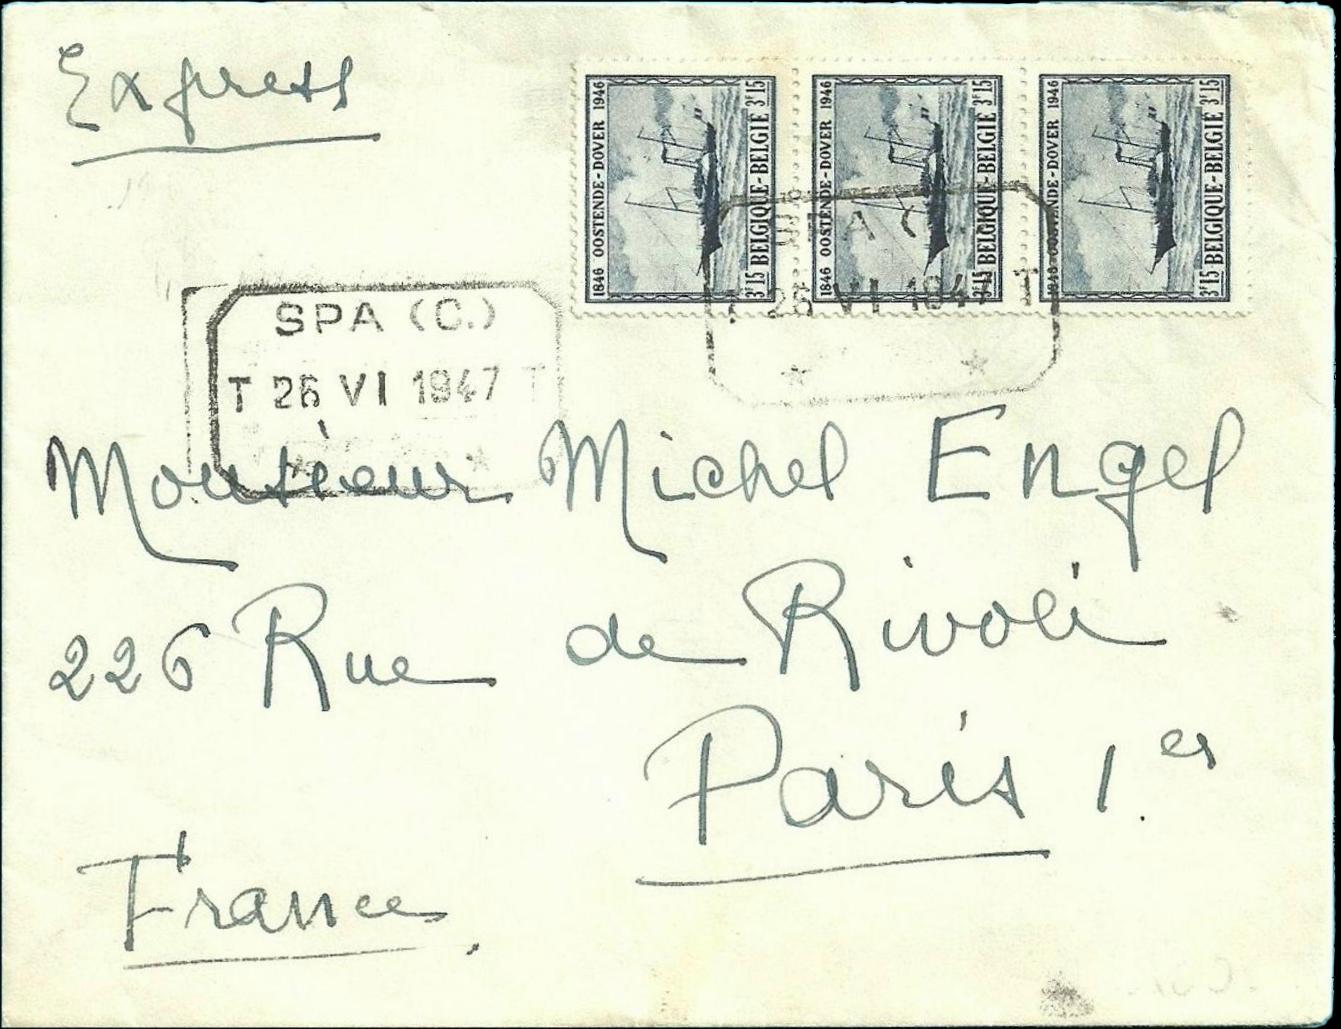 Express
1846 OOSTENDE-DOVER 1946
3F15 BELGIQUE-BELGIE 3F15
1846 OOSTENDE-DOVER 1946
3F15 BELGIQUE-BELGIE 3F15
1846 OOSTENDE-DOVER 1946
3F15 BELGIQUE-BELGIE 3F15
SPA (C.)
T 26 VI 1947 T
SPA (C.)
T 26 VI 1947 T
Monsieur Michel Engel
226 Rue de Rivoli
Paris 1er
France